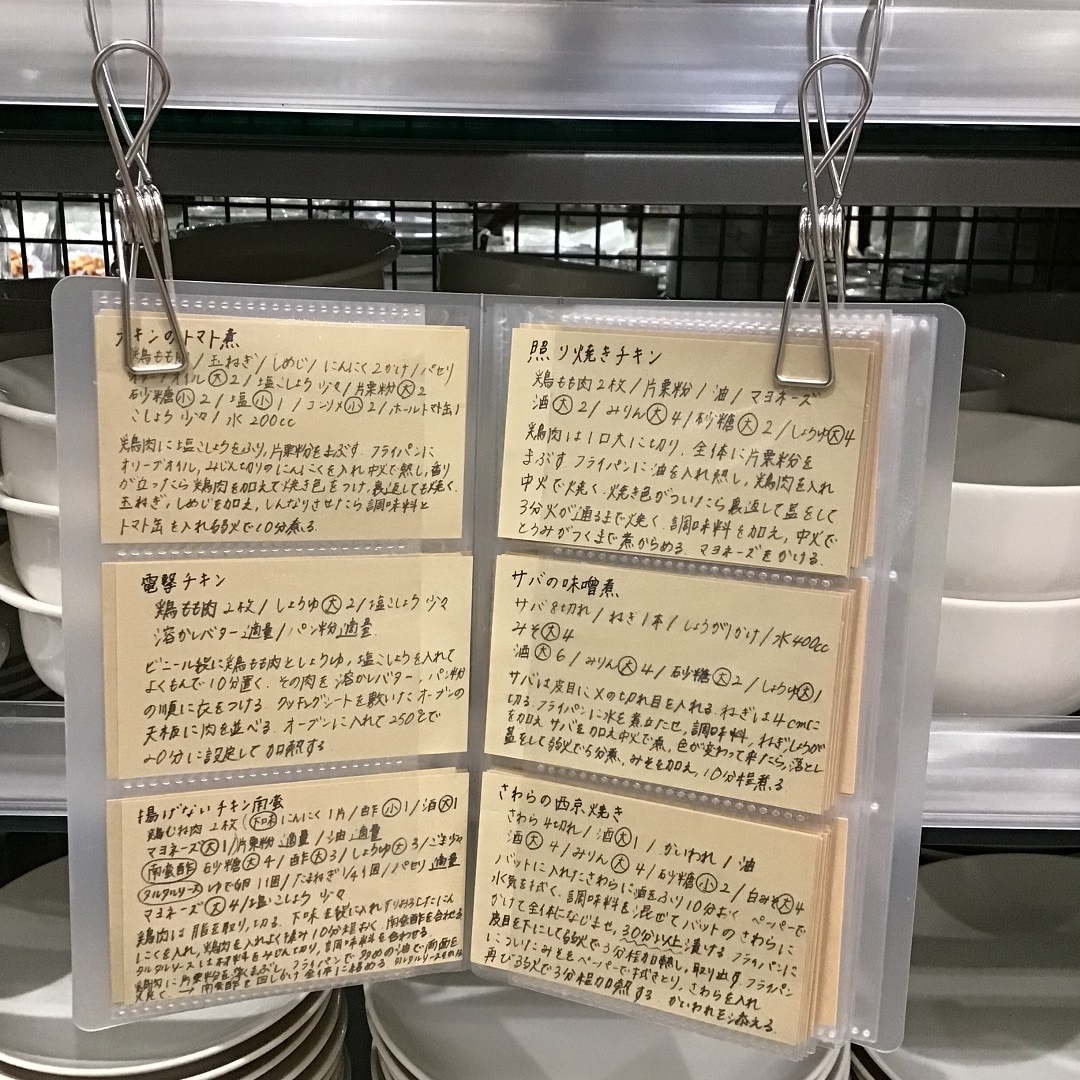 チキンのトマト煮
鶏もも肉/玉ねぎ/しめじ/にんにく2かけ/パセリ
オリーブオイル大2/塩こしょう少々/片栗粉大2
砂糖小2/塩小1/コンソメ小2/ホールトマト缶1
こしょう少々/水200cc
鶏肉に塩こしょうをふり,片栗粉をまぶす.フライパンに
オリーブオイル,みじん切りのにんにくを入れ中火で熱し,香り
が立ったら鶏肉を加えて焼き色をつけ,裏返しても焼く.
玉ねぎ,しめじを加え,しんなりさせたら調味料と
トマト缶を入れ弱火で10分煮る.
電撃チキン
鶏もも肉2枚/しょうゆ大2/塩こしょう少々
溶かしバター適量/パン粉適量.
ビニール袋に鶏もも肉としょうゆ,塩こしょうを入れて
よくもんで10分置く.その肉を溶かしバター,パン粉
の順に衣をつける.クッキングシートを敷いたオーブンの
天板に肉を並べる.オーブンに入れて250℃で
20分に設定して加熱する
揚げないチキン南蛮
鶏むね肉2枚(下味)にんにく1片/酢小1/酒大1
マヨネーズ大1/片栗粉適量/油適量
南蛮酢 砂糖大4/酢大3/しょうゆ大3/ごま少々
タルタルソース ゆで卵1個/たまねぎ1/4個/パセリ適量
マヨネーズ大4/塩こしょう少々
鶏肉は脂を取り,切る.下味を袋に入れすりおろしたにん
にくを入れ,鶏肉を入れよく揉み10分程おく.南蛮酢を合わせる
タルタルソースは材料をみじん切り,調味料を合わせる.
鶏肉に片栗粉を薄くまぶし,フライパンで多めの油で両面を
→南蛮酢を回しかけ全体に絡める.
照り焼きチキン
鶏もも肉2枚/片栗粉/油/マヨネーズ
酒大2/みりん大4/砂糖大2/しょうゆ大4
鶏肉は1口大に切り,全体に片栗粉を
まぶす.フライパンに油を入れ熱し,鶏肉を入れ
中火で焼く.焼き色がついたら裏返して蓋をして
3分火が通るまで焼く.調味料を加え,中火で
とろみがつくまで煮からめる.マヨネーズをかける.
サバの味噌煮
サバ8切れ/ねぎ1本/しょうが1かけ/水400cc
みそ大4
酒大6/みりん大4/砂糖大2/しょうゆ大1
サバは皮目に×の切れ目を入れる.ねぎは4cmに
切る.フライパンに水を煮立たせ,調味料,ねぎ,しょうが
を加え サバを加え中火で煮,色が変わって来たら,落とし
蓋をして弱火で5分煮,みそを加え,10分程煮る.
さわらの西京焼き
さわら4切れ/酒大1/かいわれ/油
酒大4/みりん大4/砂糖小2/白みそ大4
バットに入れたさわらに酒をふり10分おく ペーパーで
水気を拭く.調味料を混ぜてバットのさわらに
かけて全体になじませ,30分以上漬ける フライパンに
皮目を下にして弱火で3分程加熱し,取り出す.フライパン
についたみそをペーパーで拭きとり,さわらを入れ
再び弱火で3分程加熱する.かいわれを添える